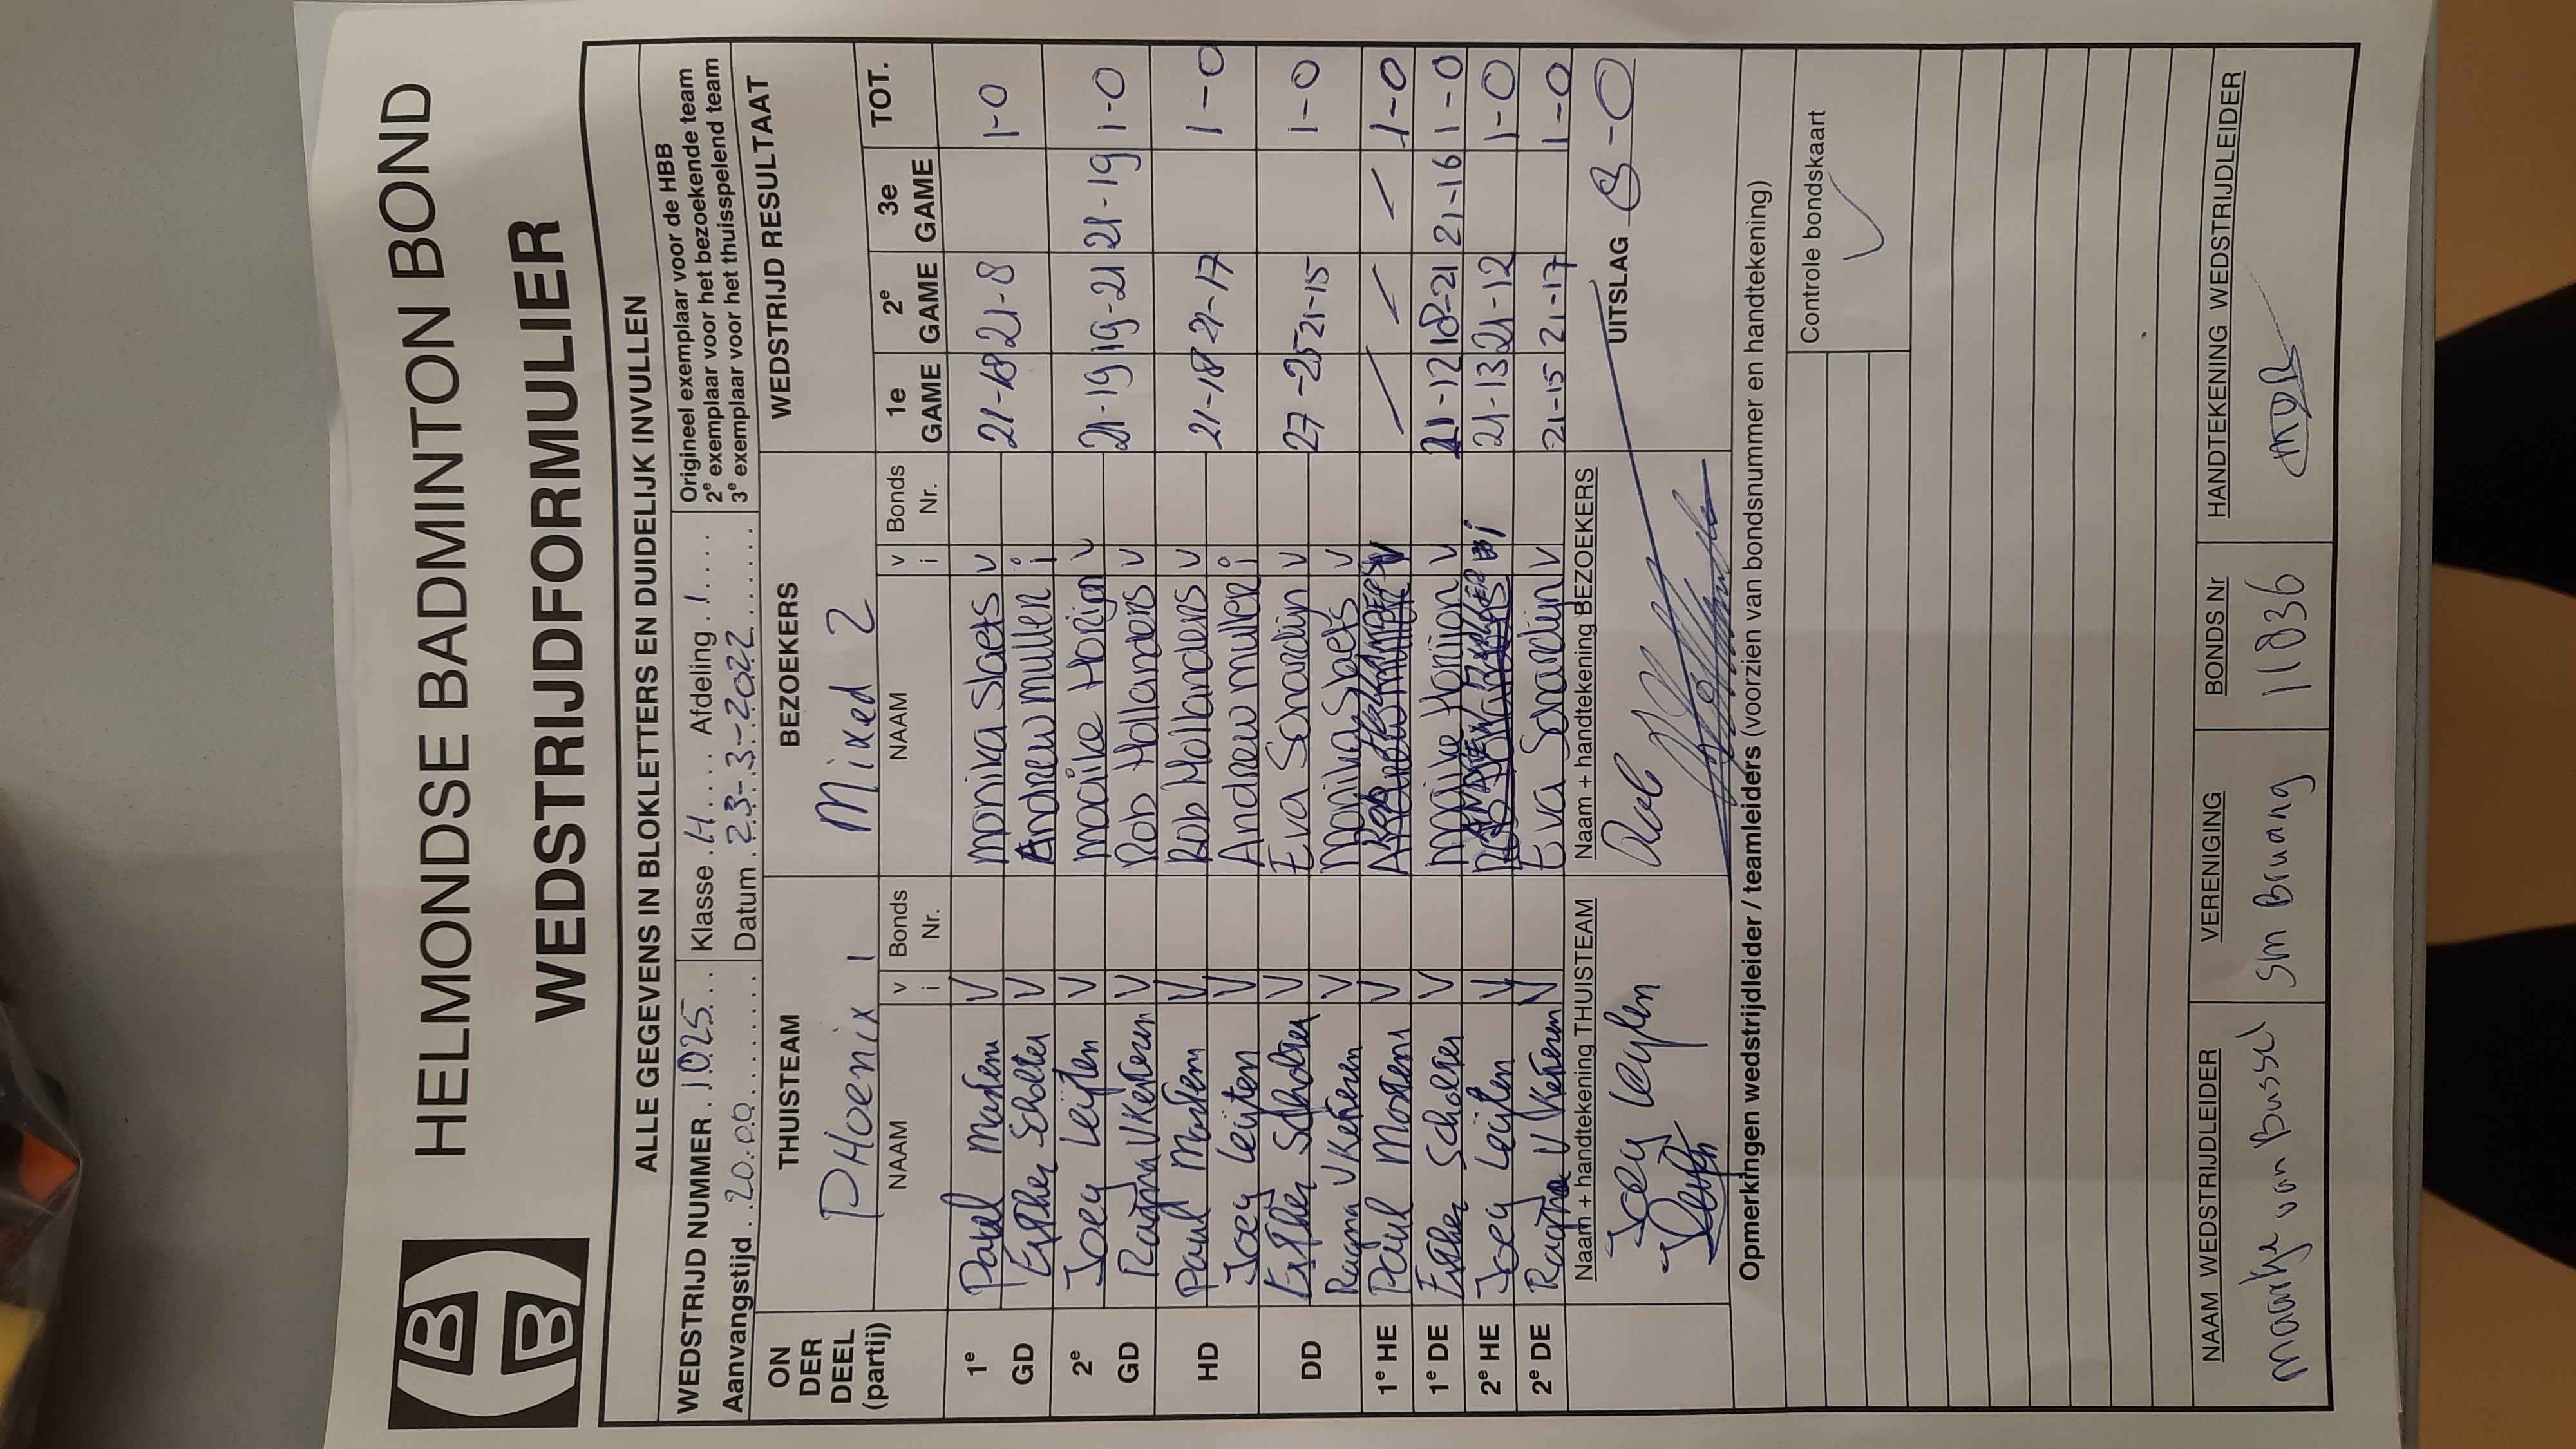 HELMONDSE BADMINTON BOND
WEDSTRIJDFORMULIER
ALLE GEGEVENS IN BLOKLETTERS EN DUIDELIJK INVULLEN
WEDSTRIJD NUMMER 1025 Klasse H Afdeling 1
Aanvangstijd 20.00 Datum 23-3-2022
Origineel exemplaar voor de HBB
2e exemplaar voor het bezoekende team
3e exemplaar voor het thuisspelend team
ON DER DEEL (partij) THUISTEAM BEZOEKERS WEDSTRIJD RESULTAAT
PHoenix 1 Mixed 2
NAAM v i Bonds Nr. NAAM v i Bonds Nr. 1e GAME 2e GAME 3e GAME TOT.
1e GD Paul Martens V monika Slaets v 21-18 21-8 1-0
Esther Scholten V Andrew muller i
2e GD Joey Leijten V maaike Horijon v 21-19 19-21 21-19 1-0
Ragna V Keferen V Rob Hollanders v
HD Paul Martens V Rob Hollanders v 21-18 21-17 1-0
Joey Leijten V Andrew muller i
DD Esther Scholten V Eva Schardijn v 27-25 21-15 1-0
Ragna V Keferen V monika Slaets v
1e HE Paul Martens V v 1-0
1e DE Esther Scholten V maaike Horijon v 21-12 18-21 21-16 1-0
2e HE Joey Leijten V i 21-13 21-12 1-0
2e DE Ragna V Keferen V Eva Schardijn v 21-15 21-17 1-0
Naam + handtekening THUISTEAM Naam + handtekening BEZOEKERS UITSLAG 8-0
Joey Leijten Rob
Opmerkingen wedstrijdleider / teamleiders (voorzien van bondsnummer en handtekening)
Controle bondskaart
NAAM WEDSTRIJDLEIDER VERENIGING BONDS Nr HANDTEKENING WEDSTRIJDLEIDER
maartje van Bussel Sm Bruang 11836